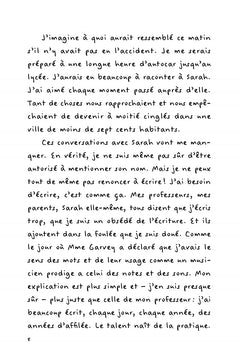 J'imagine à quoi aurait ressemblé ce matin
s'il n'y avait pas eu l'accident. Je me serais
préparé à une longue heure d'autocar jusqu'au
lycée. J'aurais eu beaucoup à raconter à Sarah.
J'ai aimé chaque moment passé auprès d'elle.
Tant de choses nous rapprochaient et nous empê-
chaient de devenir à moitié cinglés dans une
ville de moins de sept cents habitants.
Ces conversations avec Sarah vont me man-
quer. En vérité, je ne suis même pas sûr d'être
autorisé à mentionner son nom. Mais je ne peux
tout de même pas renoncer à écrire ! J'ai besoin
d'écrire, c'est comme ça. Mes professeurs, mes
parents, Sarah elle-même, tous disent que j'écris
trop, que je suis un obsédé de l'écriture. Et ils
ajoutent dans la foulée que je suis doué. Comme
le jour où Mme Garvey a déclaré que j'avais le
sens des mots et de leur usage comme un musi-
cien prodige a celui des notes et des sons. Mon
explication est plus simple et – j'en suis presque
sûr – plus juste que celle de mon professeur : j'ai
beaucoup écrit, chaque jour, chaque année, des
années d'affilée. Le talent naît de la pratique.